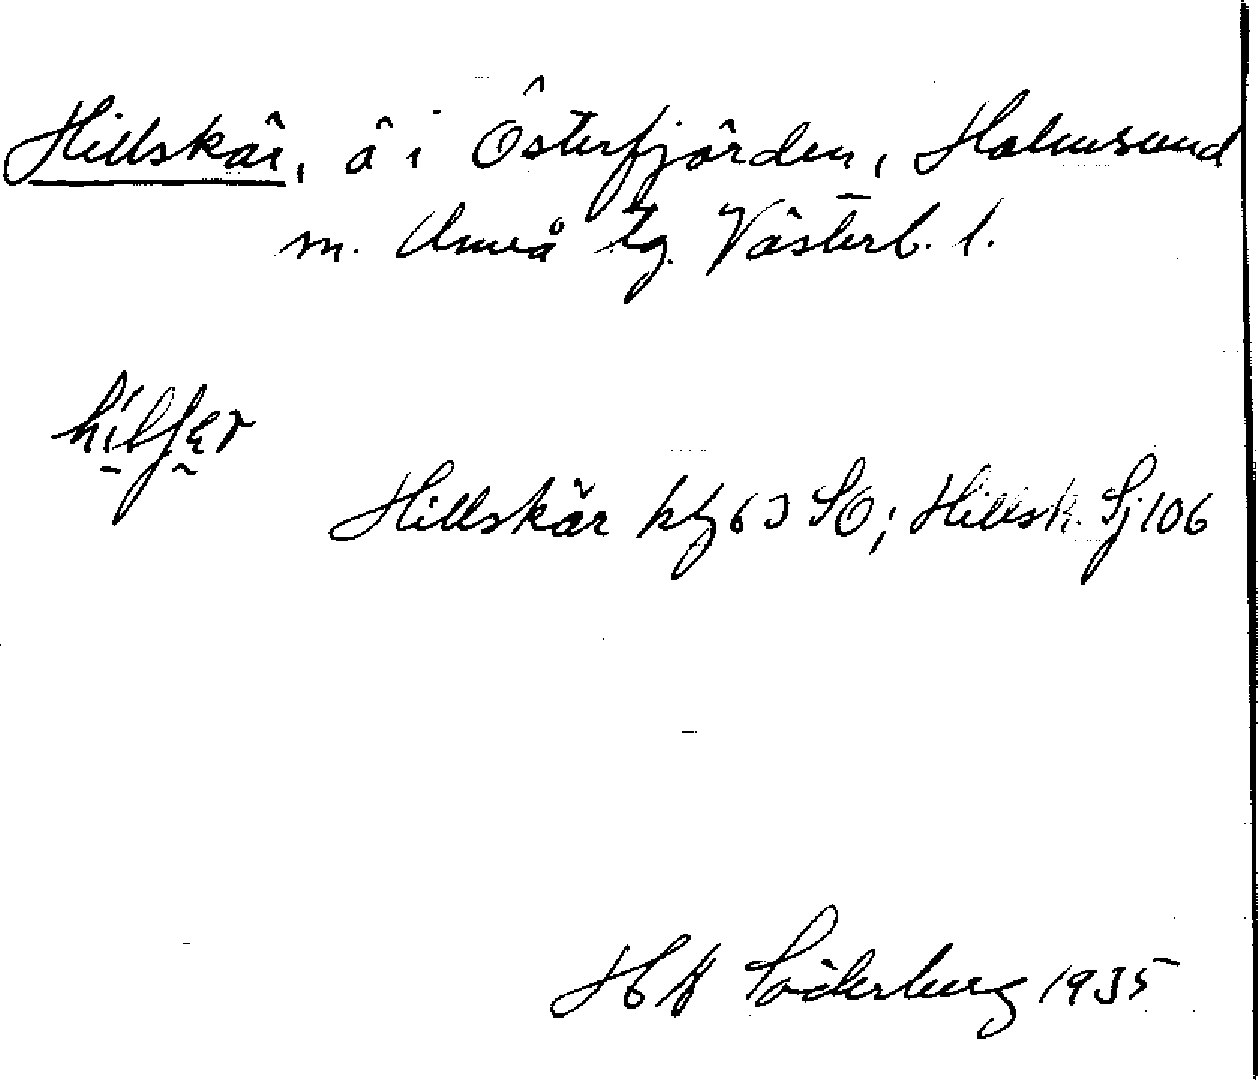 Hillskär, ö i Österfjärden, Holmsund
m. Umeå tg. Västerb. l.
Hillskär 63 SO; Hillsk. Sj 106
Söderberg 1935